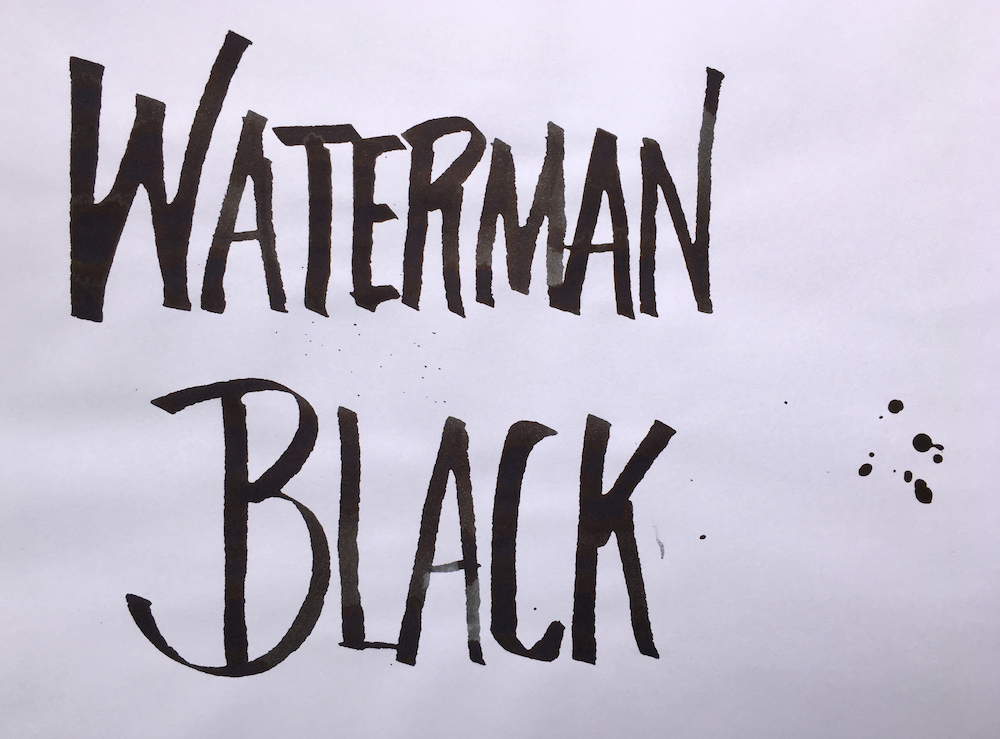 WATERMAN
BLACK